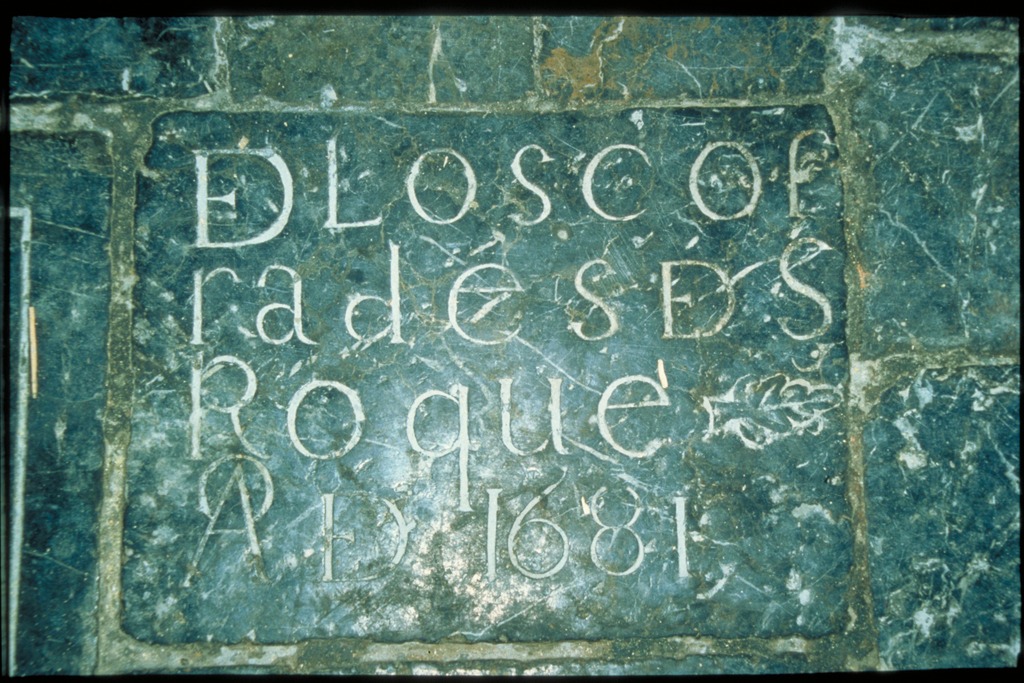 DE LOS COf
radés DE S
Roque
AÑO DE 1681